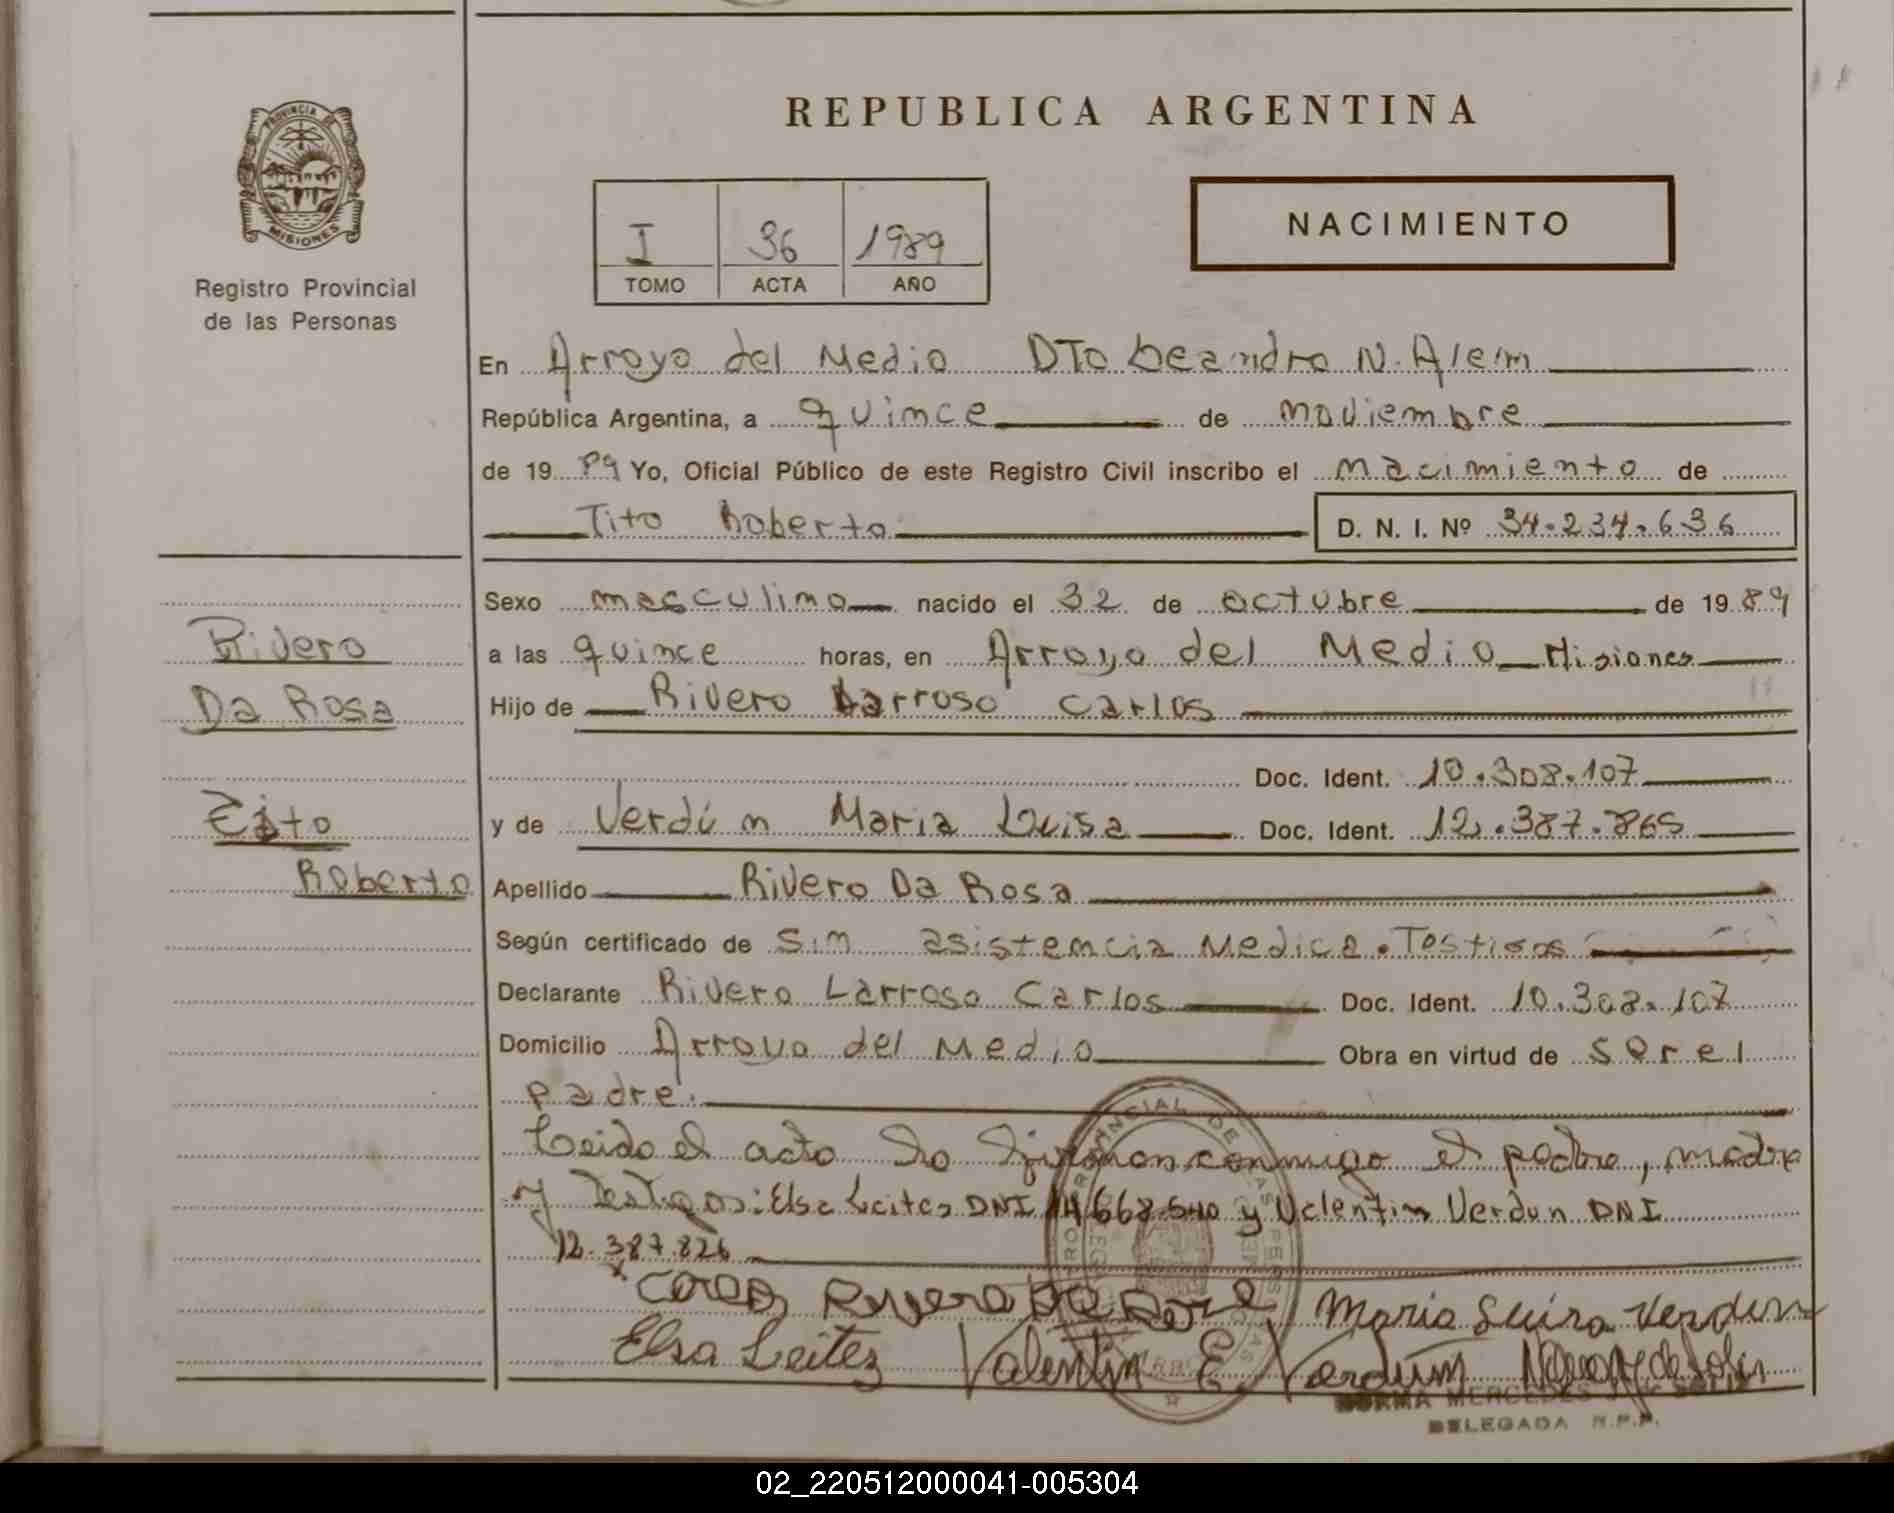 REPUBLICA ARGENTINA
PROVINCIA DE
MISIONES
Registro Provincial
de las Personas
I 36 1989
TOMO ACTA AÑO
NACIMIENTO
En Arroyo del Medio DTO Leandro N. Alem
República Argentina, a quince de noviembre
de 19 89 Yo, Oficial Público de este Registro Civil inscribo el nacimiento de
Tito Roberto D. N. I. Nº 34.234.636
Sexo masculino nacido el 32 de octubre de 19 89
a las quince horas, en Arroyo del Medio Misiones
Hijo de Rivero Larroso Carlos
Doc. Ident. 10.308.107
y de Verdún Maria Luisa Doc. Ident. 12.387.865
Apellido Rivero Da Rosa
Según certificado de Sin asistencia Medica. Testigos
Declarante Rivero Larroso Carlos Doc. Ident. 10.308.107
Domicilio Arroyo del Medio Obra en virtud de ser el
padre.
Leido el acto lo firman conmigo el padre, madre
y Testigos: Elsa Leites DNI 14668.540 y Valentin Verdun DNI
12.387.826
Rivero
Da Rosa
Tito
Roberto
Rivero Da Rosa Maria Luisa Verdun
Elsa Leites Valentin E. Verdum
NORMA MERCEDES
DELEGADA R.P.P.
02_220512000041-005304